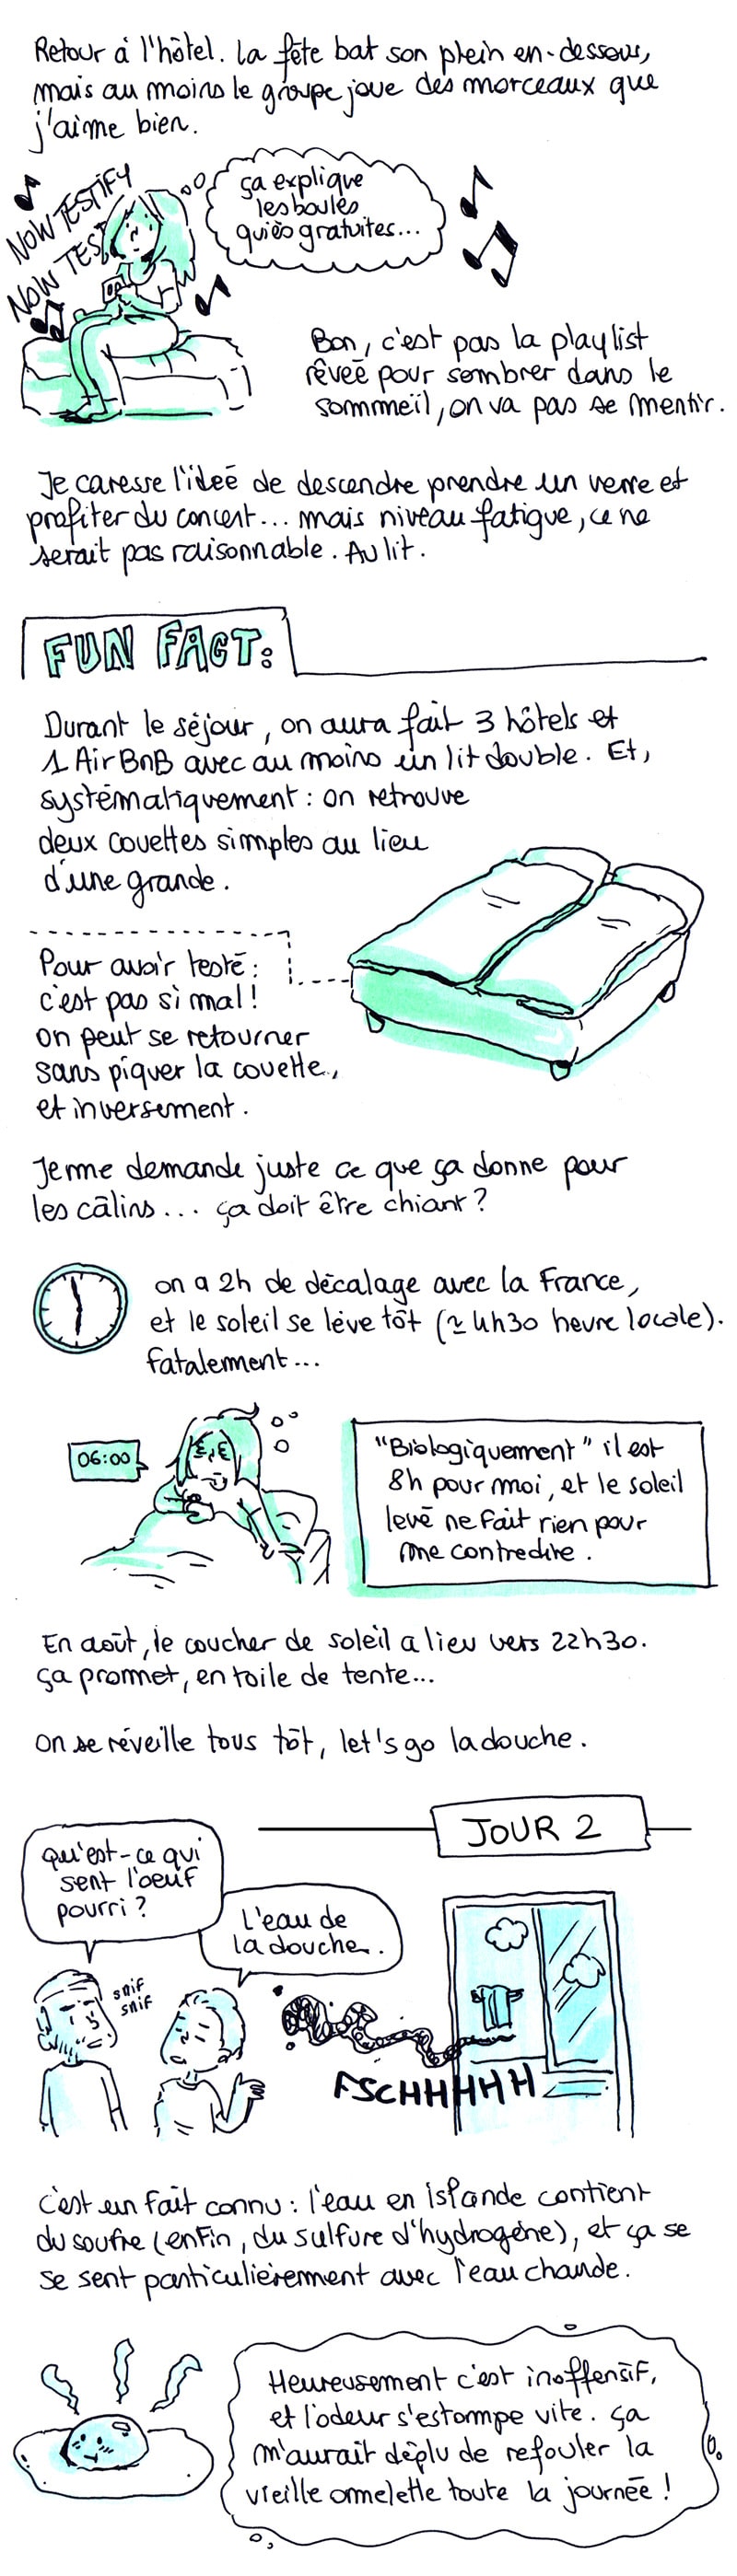 Retour à l'hôtel. La fête bat son plein en-dessous,
mais au moins le groupe joue des morceaux que
j'aime bien.
NOW TESTIFY
NOW TES
ça explique
les boules
quiès gratuites...
Bon, c'est pas la playlist
rêvée pour sombrer dans le
sommeil, on va pas se mentir.
Je caresse l'idée de descendre prendre un verre et
profiter du concert... mais niveau fatigue, ce ne
serait pas raisonnable. Au lit.
FUN FACT:
Durant le séjour, on aura fait 3 hôtels et
1 AirBnB avec au moins un lit double. Et,
systématiquement : on retrouve
deux couettes simples au lieu
d'une grande.
Pour avoir testé :
c'est pas si mal !
on peut se retourner
sans piquer la couette,
et inversement.
Je me demande juste ce que ça donne pour
les câlins... ça doit être chiant ?
on a 2h de décalage avec la France,
et le soleil se lève tôt (≃ 4h30 heure locale).
fatalement...
06:00
"Biologiquement" il est
8h pour moi, et le soleil
levé ne fait rien pour
me contredire.
En août, le coucher de soleil a lieu vers 22h30.
ça promet, en toile de tente...
on se réveille tous tôt, let's go la douche.
JOUR 2
qu'est-ce qui
sent l'oeuf
pourri ?
L'eau de
la douche.
snif
snif
FSCHHHHH
c'est un fait connu : l'eau en islande contient
du soufre (enfin, du sulfure d'hydrogène), et ça se
se sent particulièrement avec l'eau chaude.
Heureusement c'est inoffensif,
et l'odeur s'estompe vite. ça
m'aurait déplu de refouler la
vieille omelette toute la journée !